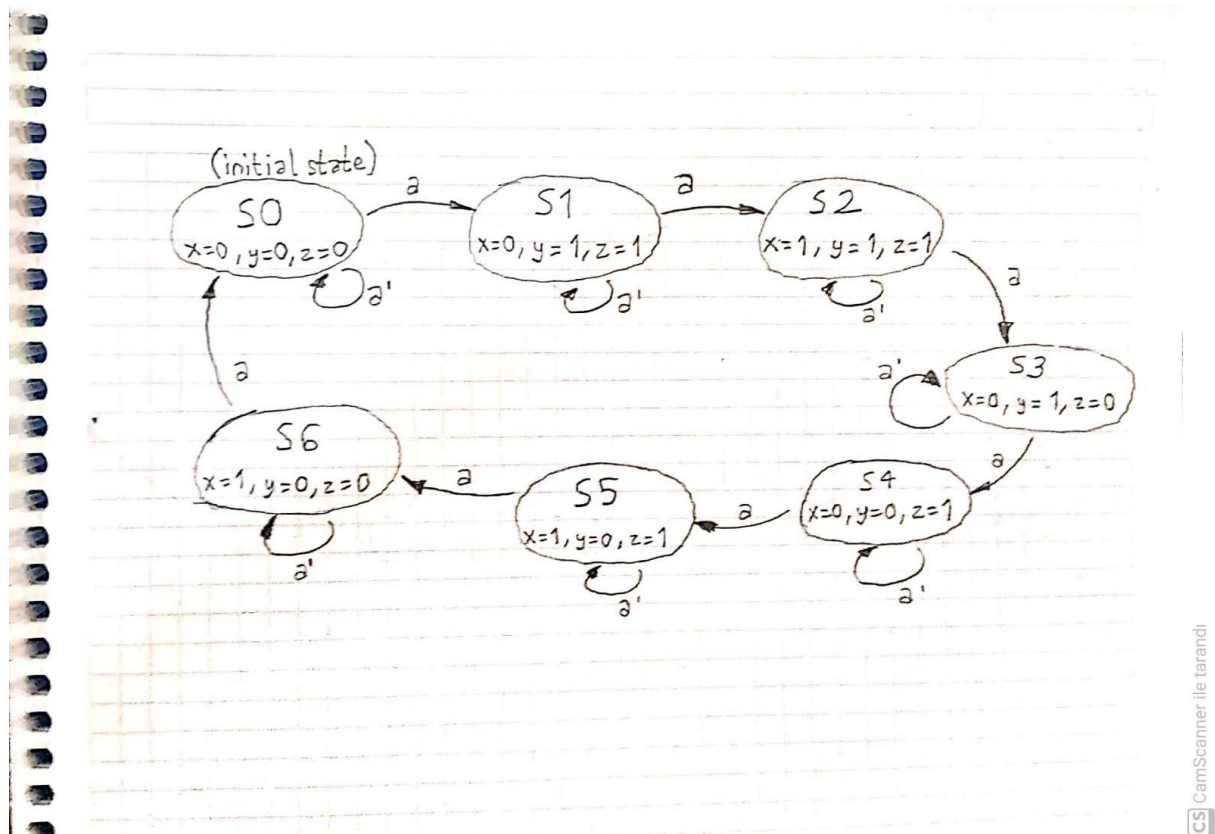 (initial state)
S0
x=0, y=0, z=0
a'
a
S1
x=0, y=1, z=1
a'
a
S2
x=1, y=1, z=1
a'
a
S3
x=0, y=1, z=0
a'
a
S4
x=0, y=0, z=1
a'
a
S5
x=1, y=0, z=1
a'
a
S6
x=1, y=0, z=0
a'
a
CS CamScanner ile tarandı